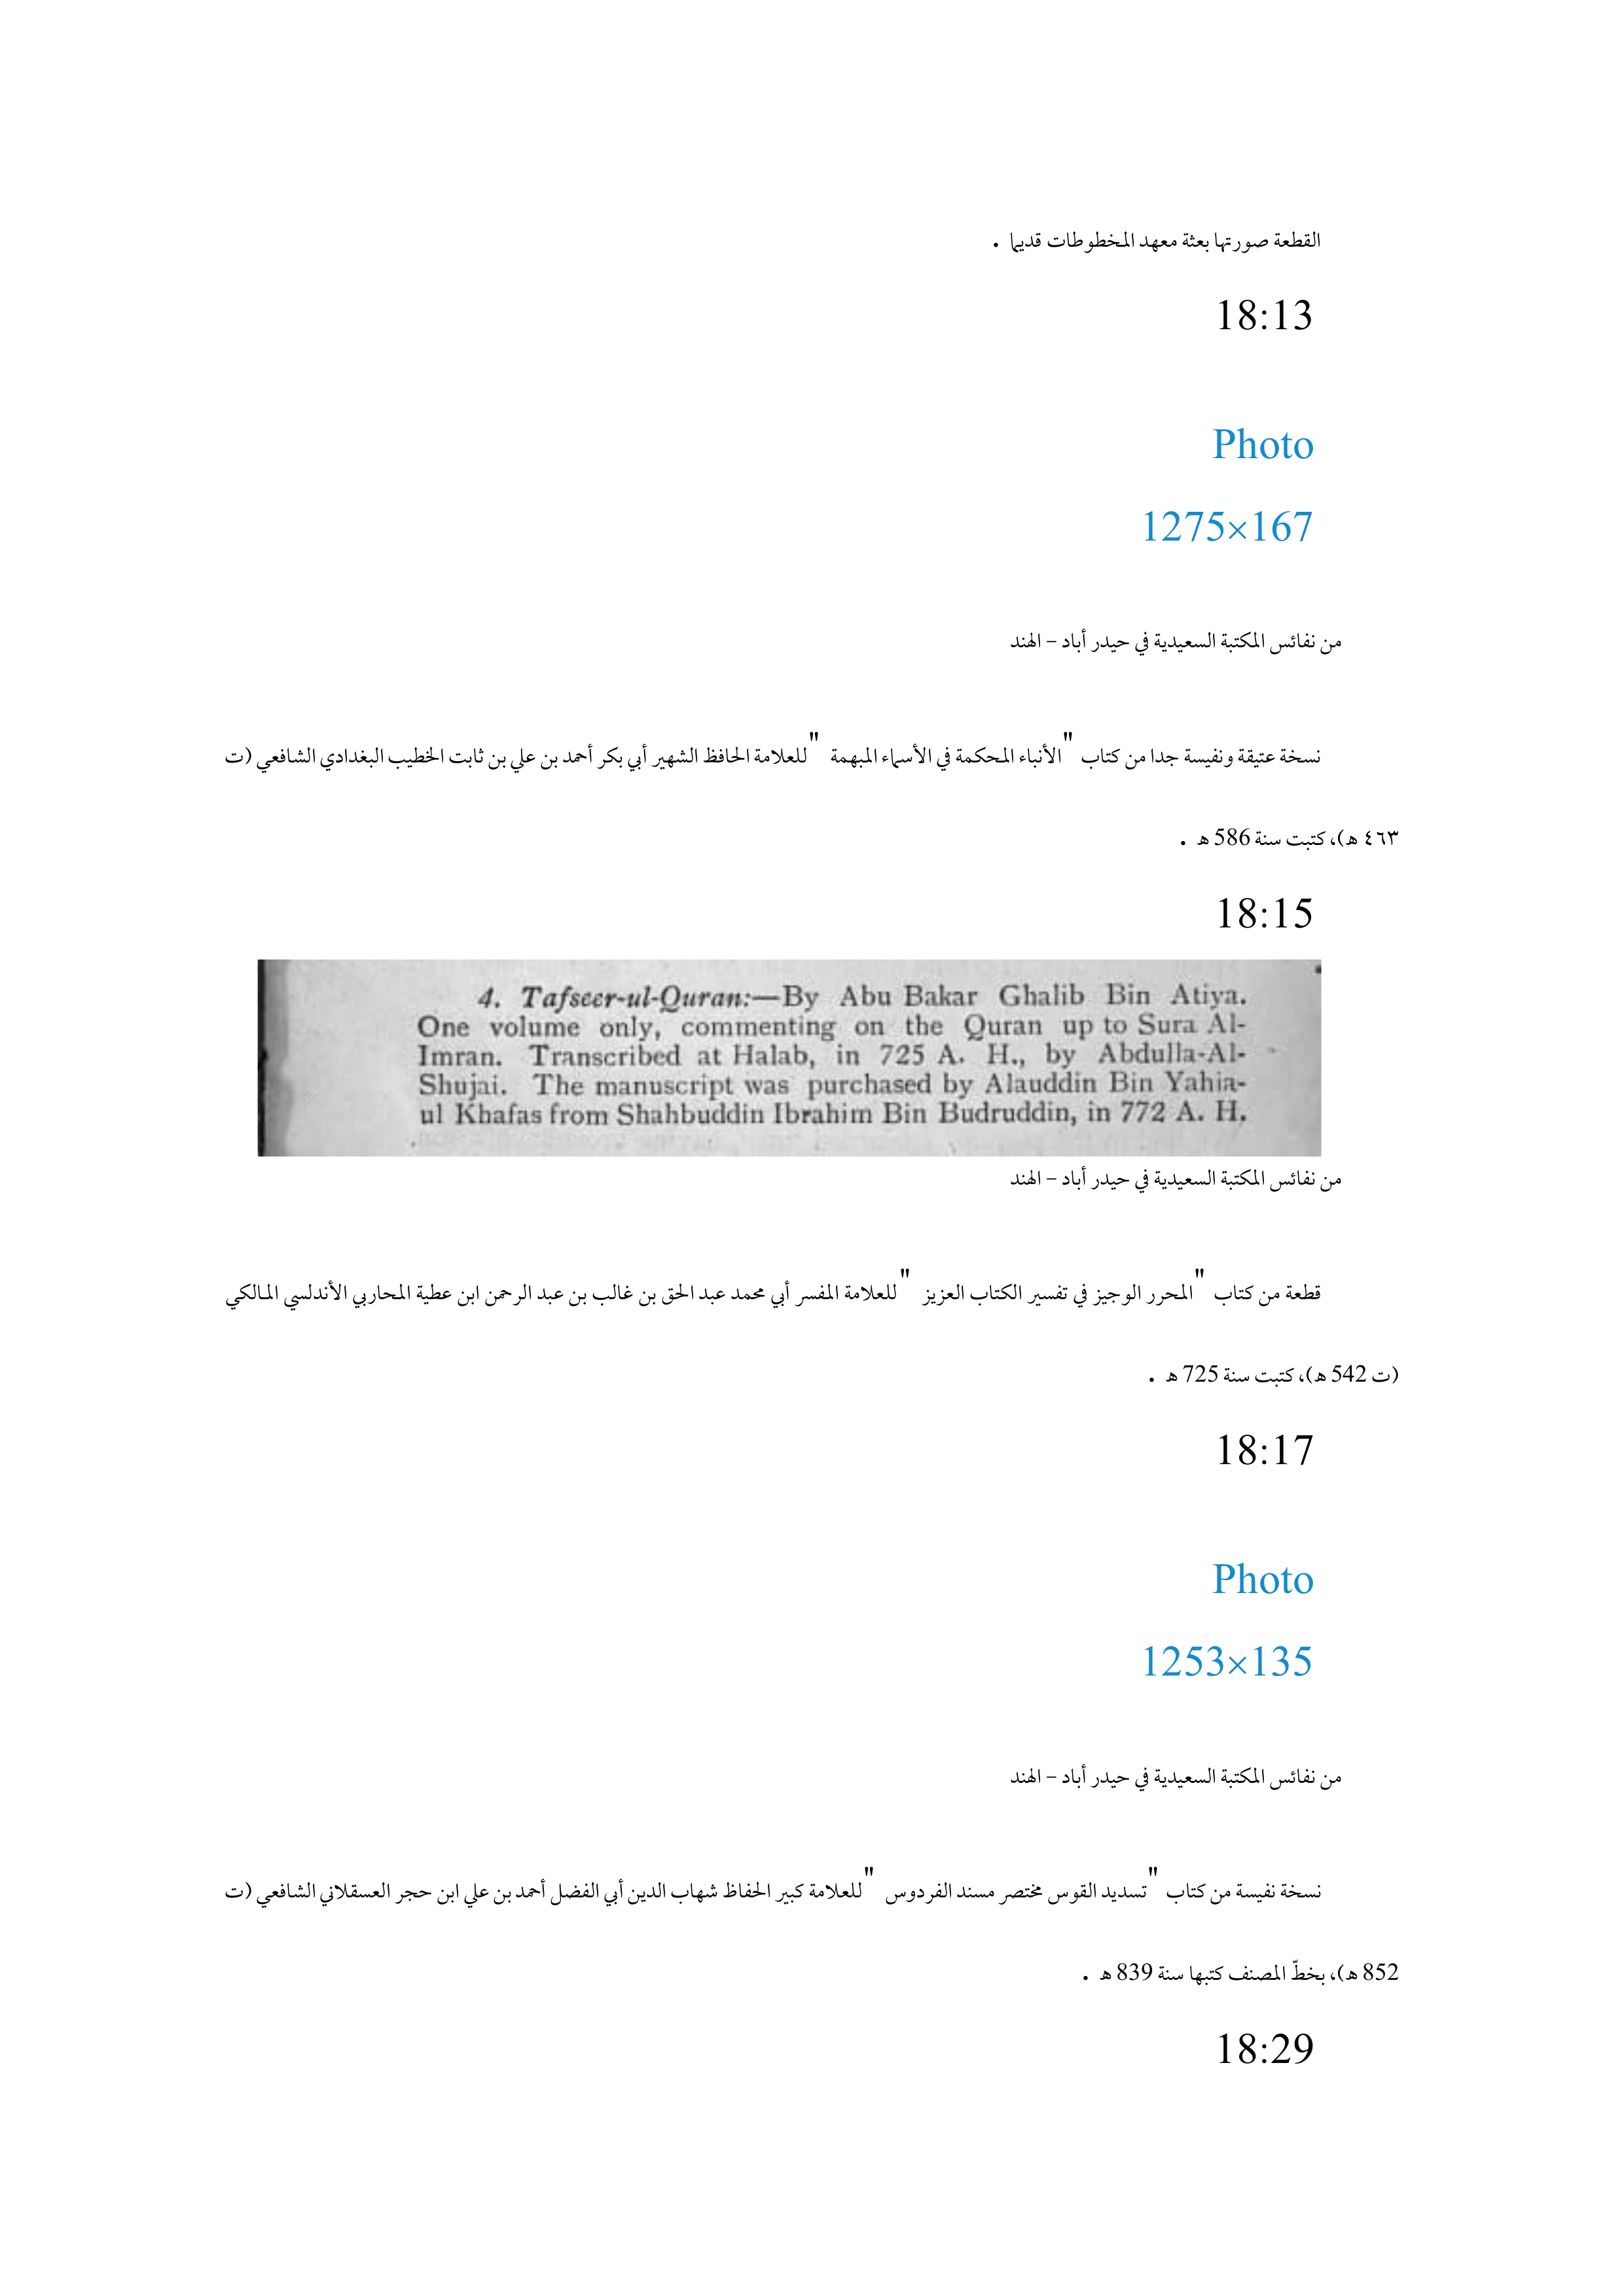 القطعة صورتها بعثة معهد المخطوطات قديما .
18:13
Photo
1275×167
من نفائس المكتبة السعيدية في حيدر أباد – الهند
نسخة عتيقة ونفيسة جدا من كتاب "الأنباء المحكمة في الأسماء المبهمة "للعلامة الحافظ الشهير أبي بكر أحمد بن علي بن ثابت الخطيب البغدادي الشافعي (ت
٤٦٣ هـ)، كتبت سنة 586 هـ .
18:15
4. Tafseer-ul-Quran:—By Abu Bakar Ghalib Bin Atiya.
One volume only, commenting on the Quran up to Sura Al-
Imran. Transcribed at Halab, in 725 A. H., by Abdulla-Al-
Shujai. The manuscript was purchased by Alauddin Bin Yahia-
ul Khafas from Shahbuddin Ibrahim Bin Budruddin, in 772 A. H.
من نفائس المكتبة السعيدية في حيدر أباد – الهند
قطعة من كتاب "المحرر الوجيز في تفسير الكتاب العزيز "للعلامة المفسر أبي محمد عبد الحق بن غالب بن عبد الرحمن ابن عطية المحاربي الأندلسي المالكي
(ت 542 هـ)، كتبت سنة 725 هـ .
18:17
Photo
1253×135
من نفائس المكتبة السعيدية في حيدر أباد – الهند
نسخة نفيسة من كتاب "تسديد القوس مختصر مسند الفردوس "للعلامة كبير الحفاظ شهاب الدين أبي الفضل أحمد بن علي ابن حجر العسقلاني الشافعي (ت
852 هـ)، بخطّ المصنف كتبها سنة 839 هـ .
18:29